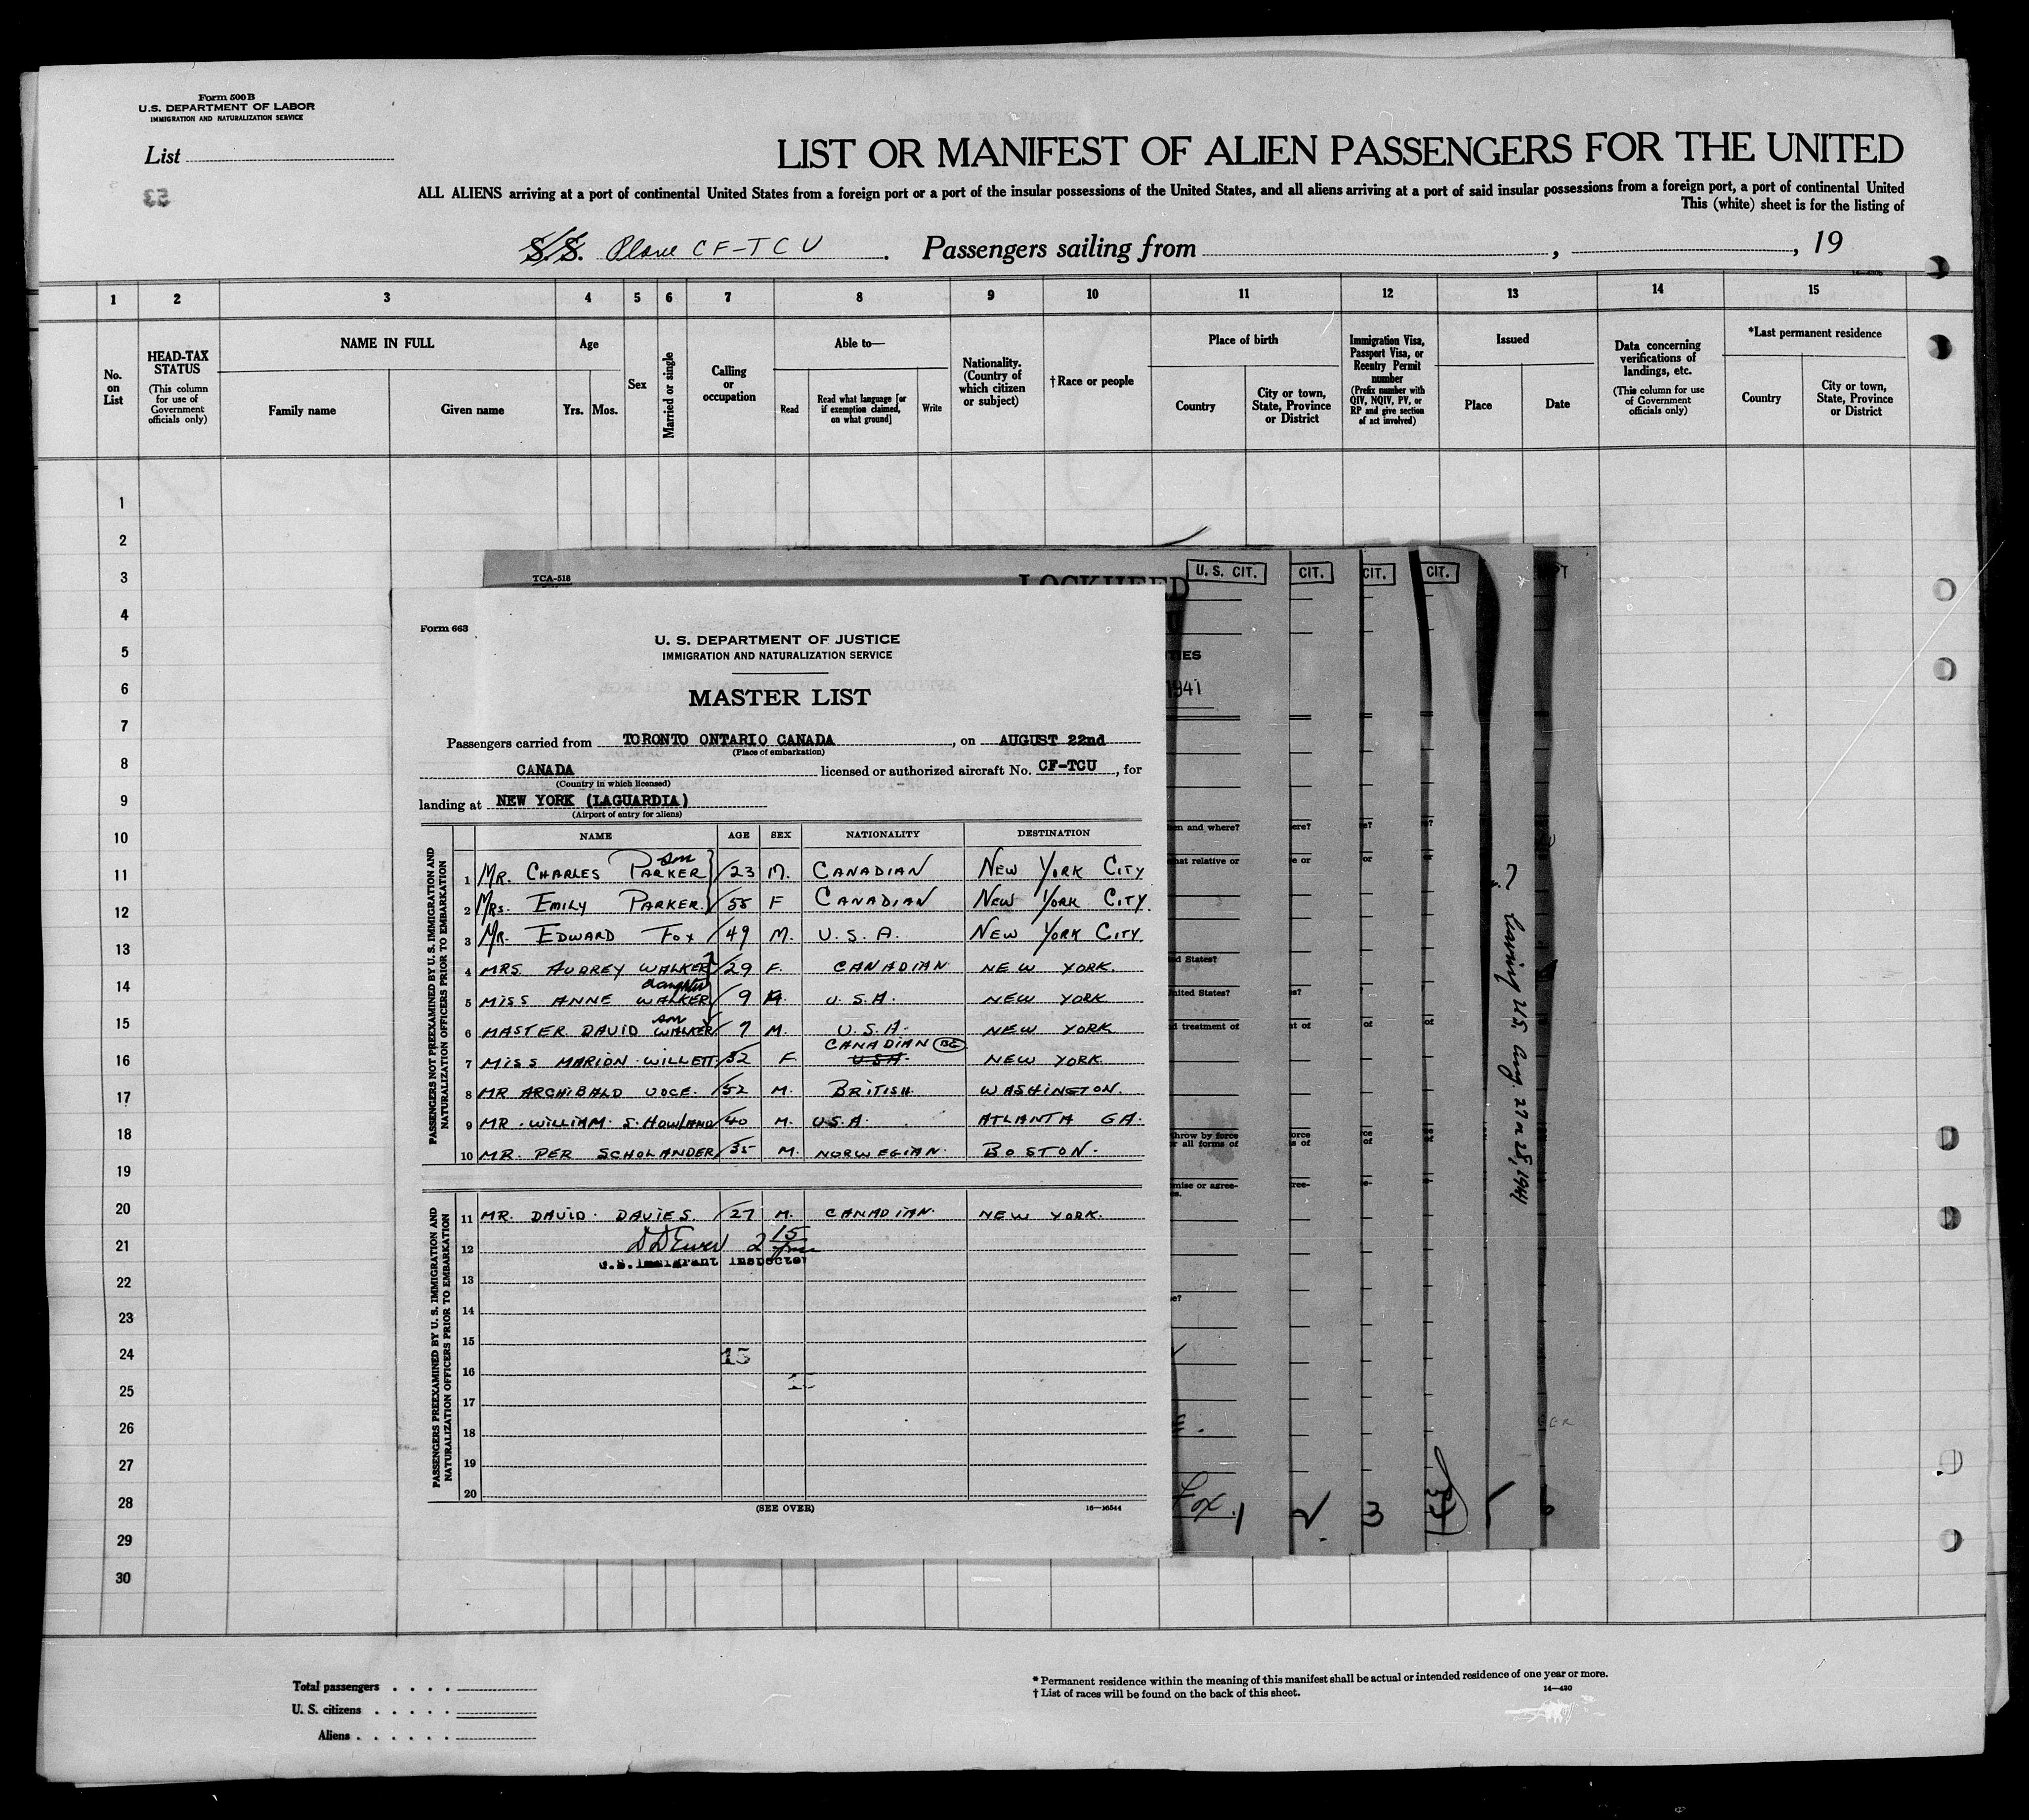 Form 500B
U.S. DEPARTMENT OF LABOR
IMMIGRATION AND NATURALIZATION SERVICE
List
53
LIST OR MANIFEST OF ALIEN PASSENGERS FOR THE UNITED
ALL ALIENS arriving at a port of continental United States from a foreign port or a port of the insular possessions of the United States, and all aliens arriving at a port of said insular possessions from a foreign port, a port of continental United
This (white) sheet is for the listing of
S.S. Plane CF-TCU . Passengers sailing from , , 19
1 2 3 4 5 6 7 8 9 10 11 12 13 14 15
No. on List
HEAD-TAX STATUS
(This column for use of Government officials only)
NAME IN FULL
Family name
Given name
Age
Yrs. Mos.
Sex
Married or single
Calling or occupation
Able to—
Read
Read what language [or if exemption claimed, on what ground]
Write
Nationality. (Country of which citizen or subject)
†Race or people
Place of birth
Country
City or town, State, Province or District
Immigration Visa, Passport Visa, or Reentry Permit number
(Prefix number with QIV, NQIV, PV, or RP and give section of act involved)
Issued
Place
Date
Data concerning verifications of landings, etc.
(This column for use of Government officials only)
*Last permanent residence
Country
City or town, State, Province or District
1
2
3
4
5
6
7
8
9
10
11
12
13
14
15
16
17
18
19
20
21
22
23
24
25
26
27
28
29
30
TCA-518
LOCKHEED
U. S. CIT.
CIT.
CIT.
CIT.
1941
Form 663
U. S. DEPARTMENT OF JUSTICE
IMMIGRATION AND NATURALIZATION SERVICE
MASTER LIST
Passengers carried from TORONTO ONTARIO CANADA , on AUGUST 22nd
(Place of embarkation)
CANADA licensed or authorized aircraft No. CF-TCU , for
(Country in which licensed)
landing at NEW YORK (LAGUARDIA)
(Airport of entry for aliens)
NAME AGE SEX NATIONALITY DESTINATION
PASSENGERS NOT PREEXAMINED BY U. S. IMMIGRATION AND NATURALIZATION OFFICERS PRIOR TO EMBARKATION
son
1 MR. CHARLES PARKER 23 M. CANADIAN NEW YORK CITY
2 MRS. EMILY PARKER 55 F CANADIAN NEW YORK CITY.
3 MR. EDWARD FOX 49 M. U.S.A. NEW YORK CITY.
4 MRS. AUDREY WALKER 29 F. CANADIAN NEW YORK.
daughter
5 MISS ANNE WALKER 9 U.S.A. NEW YORK
son
6 MASTER DAVID WALKER 7 M. U.S.A. NEW YORK
CANADIAN
7 MISS MARION WILLETT 32 F. USA. NEW YORK
8 MR ARCHIBALD VOCE. 52 M. BRITISH. WASHINGTON.
9 MR. WILLIAM. S. HOWLAND 40 M. U.S.A. ATLANTA GA.
10 MR. PER SCHOLANDER 35 M. NORWEGIAN. BOSTON.
PASSENGERS PREEXAMINED BY U. S. IMMIGRATION AND NATURALIZATION OFFICERS PRIOR TO EMBARKATION
11 MR. DAVID. DAVIES. 27 M. CANADIAN. NEW YORK.
12 2 15
U.S. Immigrant Inspector
13
14
15
15
16
17
18
19
20
(SEE OVER) 16—16544
en and where?
hat relative or
d States?
nited States?
d treatment of
throw by force
r all forms of
mise or agree-
Leaving U.S. Aug. 27 or 28, 1941
Fox 1 2 3
Total passengers . . . .
U. S. citizens . . . . .
Aliens . . . . . .
* Permanent residence within the meaning of this manifest shall be actual or intended residence of one year or more.
† List of races will be found on the back of this sheet.
14—430